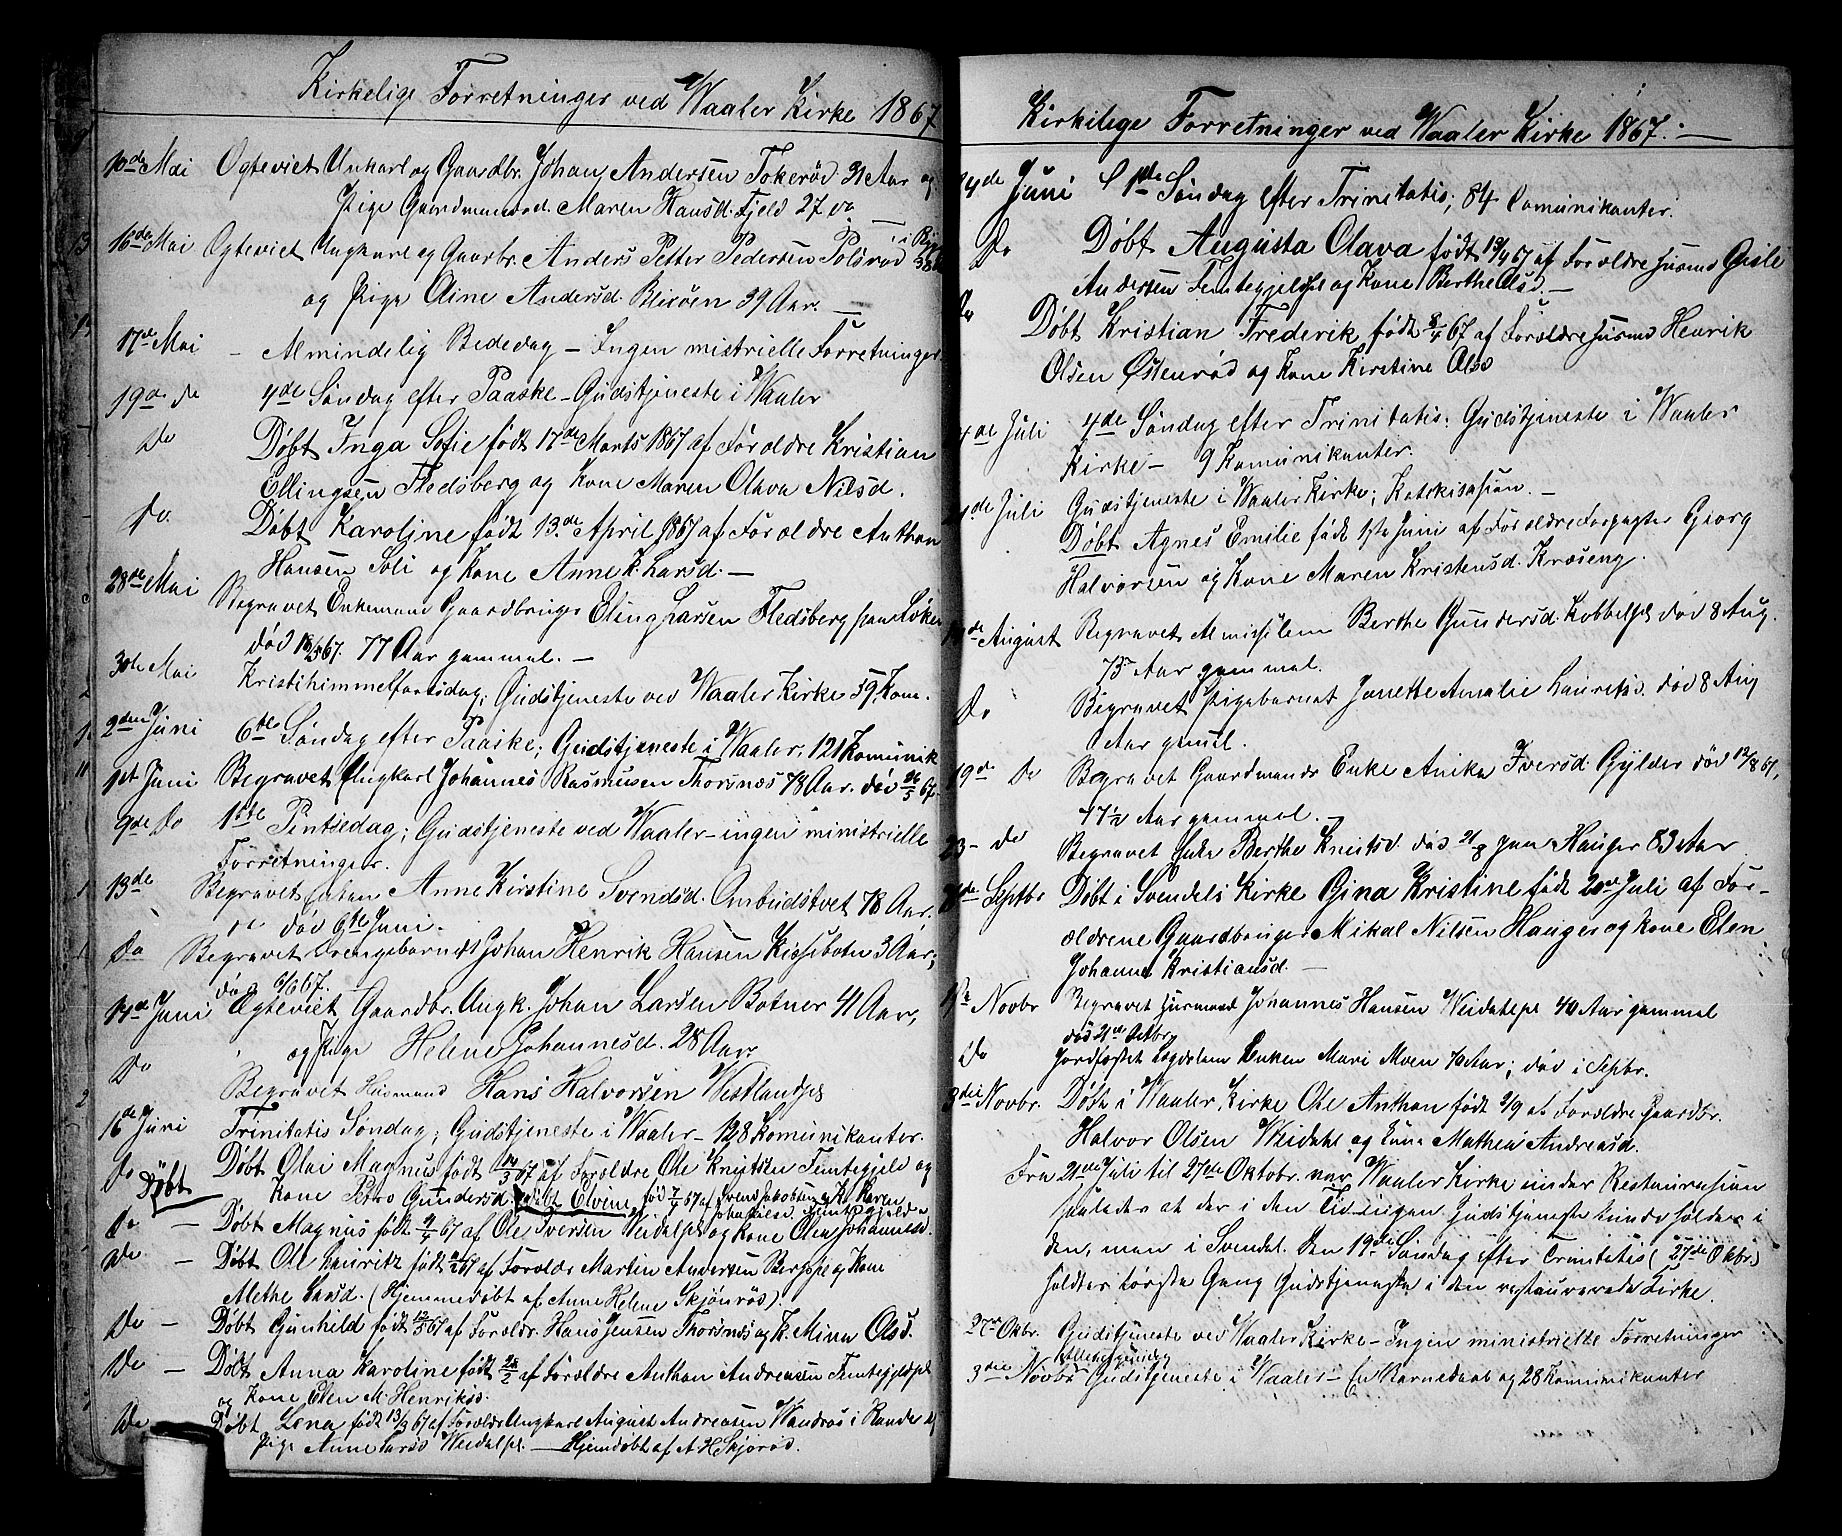 Kirkelige Forretninger ved Waaler Kirke 1867
10de Mai Ogteviet Unkarl og Gaardbr. Johan Andersen Tokerød 31 Aar og
Pige Gaardmansd. Maren Hansd. Fjeld 27 do
16de Mai Ogteviet Ungkarl og Gaarbr. Anders Petter Pedersen Polsrød
og Pige Oline Andersd. Blixöen 39 Aar. —
17de Mai – Almindelig Bededag – Ingen mistrielle Forretninger.
19de do 4de Søndag efter Paaske – Gudstjeneste i Waaler
Do Døbt Inga Sofie født 17de Marts 1867 af Foroldre Kristian
Ellingsen Flesberg og Kone Maren Olava Nilsd.
Do. Døbt Karoline født 13de April 1867 af Foroldre Anthon
Hansen Soli og Kone Anne K. Larsd. —
28de Mai Begravet Enkemand Gaardbruger Eling Larsen Flesberg
død 18/5 67. 77 Aar gammel. —
30de Mai Kristihimmelfartsdag; Gudstjeneste ved Waaler Kirke 59 Kom.
2den Juni 6te Søndag efter Paaske; Gudstjeneste i Waaler, 121 Komunik
1st Juni Begravet Ungkarl Johannes Rasmusen Thorsnæs 78 Aar. død 26/5 67.
9de Do 1ste Pintsedag; Gudstjeneste ved Waaler – ingen ministrielle
Forretninger.
13de Begravet Enken Anne Kirstine Svendsd. Ombudstvet 78 Aar.
død 6te Juni.
Do Begravet Drengebarnet Johan Henrik Hansen Kissibotn 3 Aar;
død 6/6 67.
14de Juni Ogteviet Gaardbr. Ungk. Johan Larsen Botner 41 Aar,
og Pige Helene Johannesd. 28 Aar.
Do Begravet Husmand Hans Halvorsen Westlandpl
16de Juni Trinitatis Søndag; Gudstjeneste i Waaler – 128 Komunikanter.
Do Døbt Olai Magnus født 14/3 67 af Foroldre Ole Knutsen Temtegjeld og
Døbt Kone Petro Gundersd. Døbt Elvine, fød 7/4 67 af Svend Jakobsen og K. Karen
Do – Døbt Magnus født 9/4 67 af Ole Iversen Weidalpl og Kone Olea Johannesd.
Do – Døbt Ole Lauritz født 2/2 67 af Foroldr Martin Andersen Bergspl og Kone
Methe Larsd. (Hjemmedøbt af Anne Helene Skjønrøs).
Do – Døbt Gunhild født 12/5 67 af Foroldr. Hans Jensen Thorsnæs og K. Mina Olsd.
Do – Døbt Anna Karoline født 28/2 af Foroldre Anthon Andreasen Temtegjeldpl
og Kone Elen M. Henriksd.
Do Døbt Lena født 13/3 67 af Foroldr Ungkarl August Andreasen Wandrøs i Rande og
Pige Anne Larsd Weidalpl. — Hjemdøbt af A H Skjørød.
Kirkilege Forretninger ved Waaler Kirke 1867. —
de Juni 1ste Søndag efter Trinitatis; 84 Comunikanter.
Do Døbt Augusta Olava født 19/4 67 af Foroldre Husmd Gisle
Andersen Temtegjeldpl og Kone Berthe Olsd. —
Do Døbt Kristian Frederik, født 8/4 67 af Foroldre Husmd Henrik
Olsen Østenrød og Kone Kirstine Olsd
de Juli 4de Søndag efter Trinitatis: Gudstjeneste i Waaler
Kirke – 9 Komunikanter.
de Juli Gudstjeneste i Waaler Kirke; Katekisasion. –
Døbt Agnes Emilie født 1ste Juni af Foroldre Forpagter Georg
Halvorsen og Kone Maren Kristensd. Kroseng.
de August Begravet Almisselem Berthe Gundersd. Kobbelpl død 8 Aug.
75 Aar gammal.
Do Begravet Pigebarnet Janette Amalie Lauritsd. død 8 Aug
Aar gamel.
19de Do Begravet Gaardmands Enke Anika Iversd. Gylder død 12/8 67,
77½ Aar gammal. –
23 – do Begravet Enke Berthe Knutsd. død 21/8 paa Hauger 83 Aar
de Septbr Døbt i Svendals Kirke Gina Kristine født 20de Juli af For-
ældrene Gaardbruger Mikal Nilsen Hauger og Kone Elen
Johanne Kristiansd. –
1ste Novbr Begravet Husmand Johannes Hansen Weidalepl 40 Aar gammal
død 21de Oktbr
Do Jordfæstet Lægdslem Enken Mari Moen 70 Aar; død i Sepbr.
3die Novbr. Døbt i Waaler Kirke Ole Anthon født 2/9 af Foroldre Gaardbr.
Halvor Olsen Weidahl og Kone Mathea Andreasd.
Fra 21de Juli til 27de Oktobr. var Waaler Kirke under Restaurasion
saaledes at der i den Tid ingen Gudstjeneste kunde holdes i
den, men i Svendal. Den 19de Søndag efter Trinitatis (27de Okbr.)
holdtes første Gang Gudstjeneste i den restaurerede Kirke.
27de Okbr. Gudstjeneste ved Waaler Kirke – Ingen ministrielle Forretninger
Allehelgensdag
3die Novbr Gudstjeneste i Waaler – En Barnedaab og 28 Komunikanter